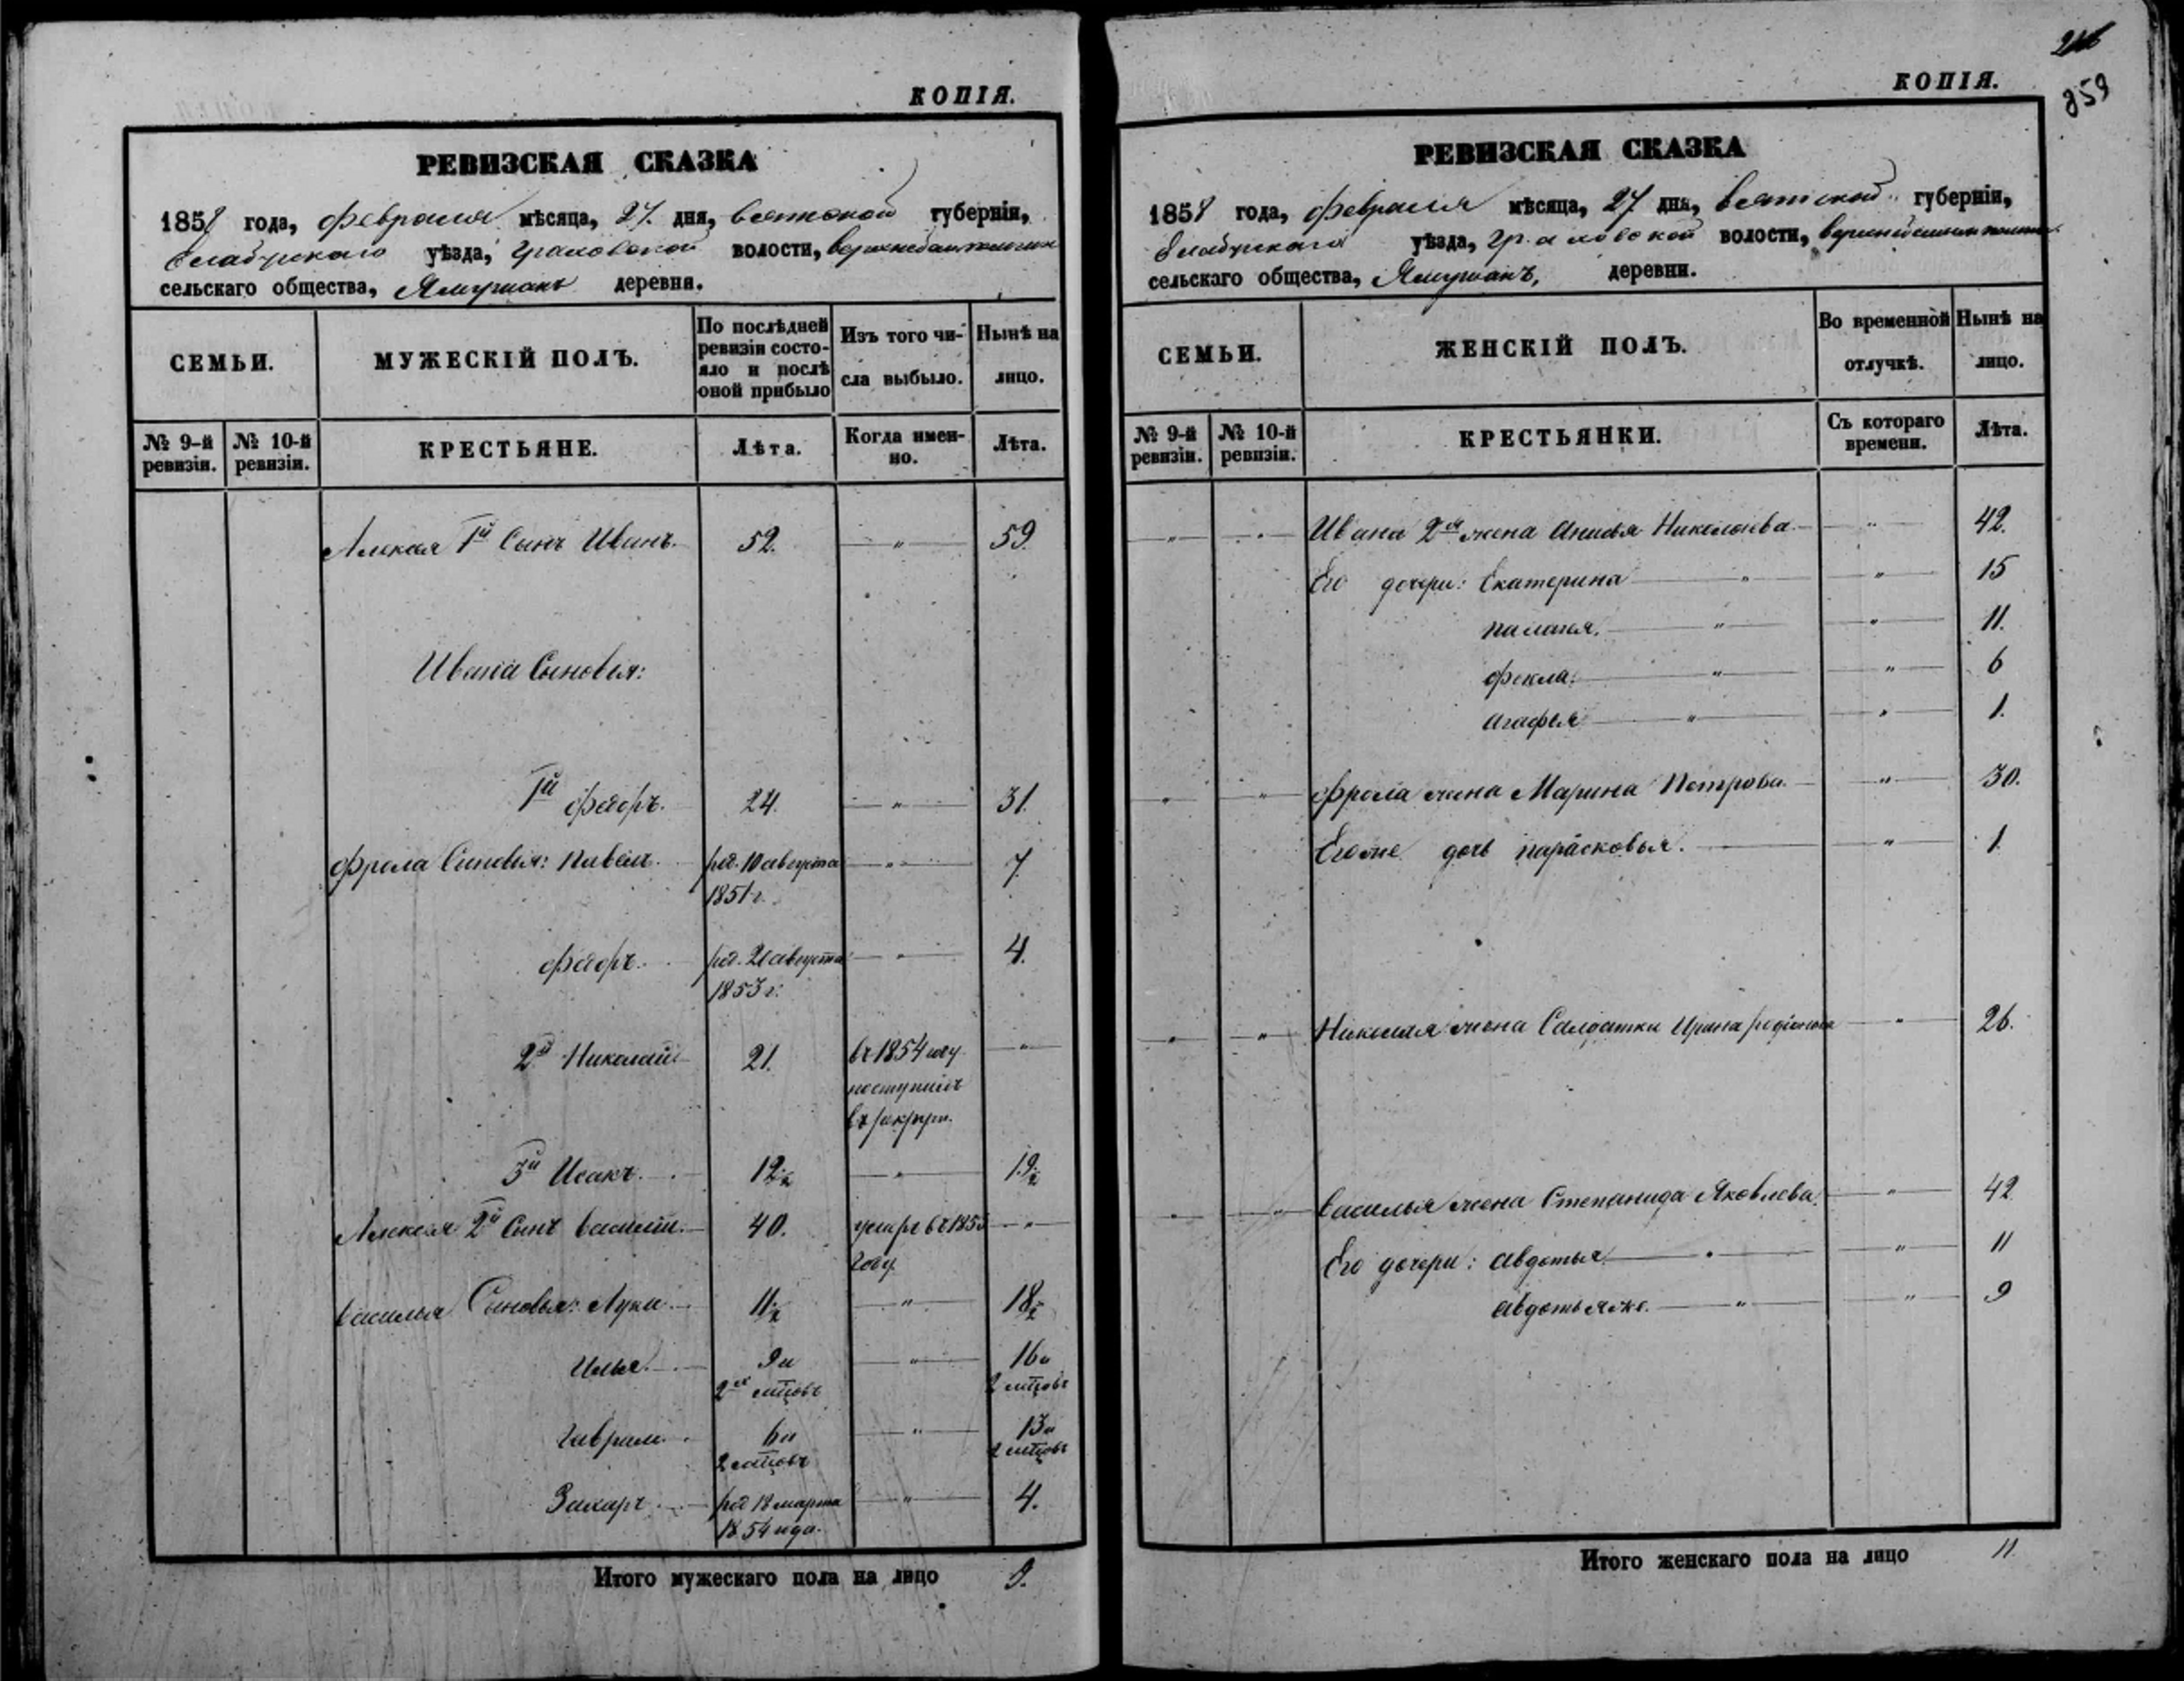 КОПІЯ.
РЕВИЗСКАЯ СКАЗКА
1858 года, февраля мѣсяца, 27. дня, вятской губерніи,
Елабужскаго уѣзда, Граховской волости,
сельскаго общества, Ямурзань деревня.
СЕМЬИ.
МУЖЕСКІЙ ПОЛЪ.
По послѣдней ревизіи состо-
яло и послѣ оной прибыло
Изъ того чи-
сла выбыло.
Нынѣ на
лицо.
№ 9-й ревизіи.
№ 10-й ревизіи.
КРЕСТЬЯНЕ.
Лѣта.
Когда имен-
но.
Лѣта.
Алексея 1й Сынъ Иванъ. 52. — " — 59.
Ивана Сыновья:
1й 24. — " — 31.
Фрола Сыновья: Павелъ. род. 10 августа — " — 7.
1851 г.
Федоръ. род. 21 августа — " — 4.
1853 г.
2й Николай 21. въ 1854 году — " —
поступилъ
въ рекрут.
3й Исакъ. 12½ — " — 19½
Алексея 2й Сынъ Василій. 40. умеръ въ 1855 — " —
году
Василья Сыновья: Лука. 11½ — " — 18½
Илья. 9 и — " — 16 и
2хъ мцовъ 2 мцовъ
Гаврилъ. 6 и — " — 13 и
2 мцовъ 2 мцовъ
Захаръ. род 18 марта — " — 4.
1854 года.
Итого мужескаго пола на лицо 9.
859
КОПІЯ.
РЕВИЗСКАЯ СКАЗКА
1858 года, февраля мѣсяца, 27. дня, вятской губерніи,
Елабужскаго уѣзда, Граховской волости,
сельскаго общества, Ямурзань, деревни.
СЕМЬИ.
ЖЕНСКІЙ ПОЛЪ.
Во временной
отлучкѣ.
Нынѣ на
лицо.
№ 9-й ревизіи.
№ 10-й ревизіи.
КРЕСТЬЯНКИ.
Съ котораго
времени.
Лѣта.
— " — — " — Ивана 2я жена Анисья Николаева — " — 42.
Его дочери: Екатерина — " — — " — 15
Палагея. — " — — " — 11.
Фекла: — " — — " — 6
Агафья — " — — " — 1.
— " — — " — Фрола жена Марина Петрова. — " — 30.
Егоже дочь Парасковья. — " — 1
— " — — " — Николая жена Салдатка Ирина Родіонова — " — 26.
— " — — " — Василья жена Степанида Яковлева. — " — 42
Его дочери: Авдотья — " — — " — 11
Авдотья же. — " — — " — 9
Итого женскаго пола на лицо 11.